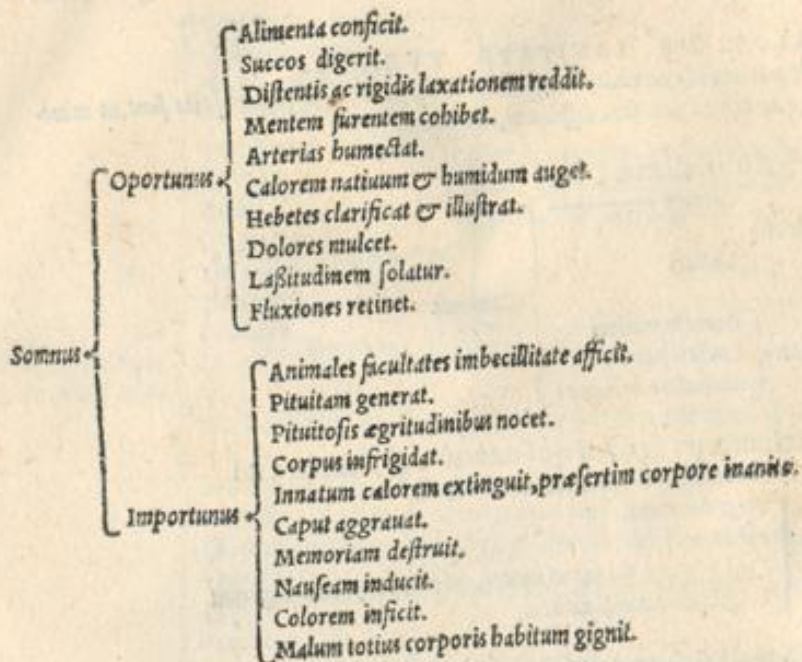 Alimenta conficit.
Succos digerit.
Diſtentis ac rigidis laxationem reddit.
Mentem furentem cohibet.
Arterias humectat.
Oportunus
Calorem natiuum & humidum auget.
Hebetes clarificat & illuſtrat.
Dolores mulcet.
Laßitudinem ſolatur.
Fluxiones retinet.
Somnus
Animales facultates imbecillitate afficit.
Pituitam generat.
Pituitoſis ægritudinibus nocet.
Corpus infrigidat.
Innatum calorem extinguit, præſertim corpore inanito.
Importunus
Caput aggrauat.
Memoriam deſtruit.
Nauſeam inducit.
Colorem inficit.
Malum totius corporis habitum gignit.